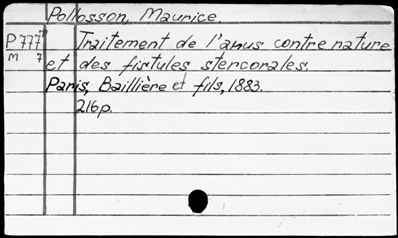 Pollosson, Maurice.
P777 Traitement de l'anus contre nature
M 7 et des fistules stercorales.
Paris, Baillière et fils, 1883.
216p.